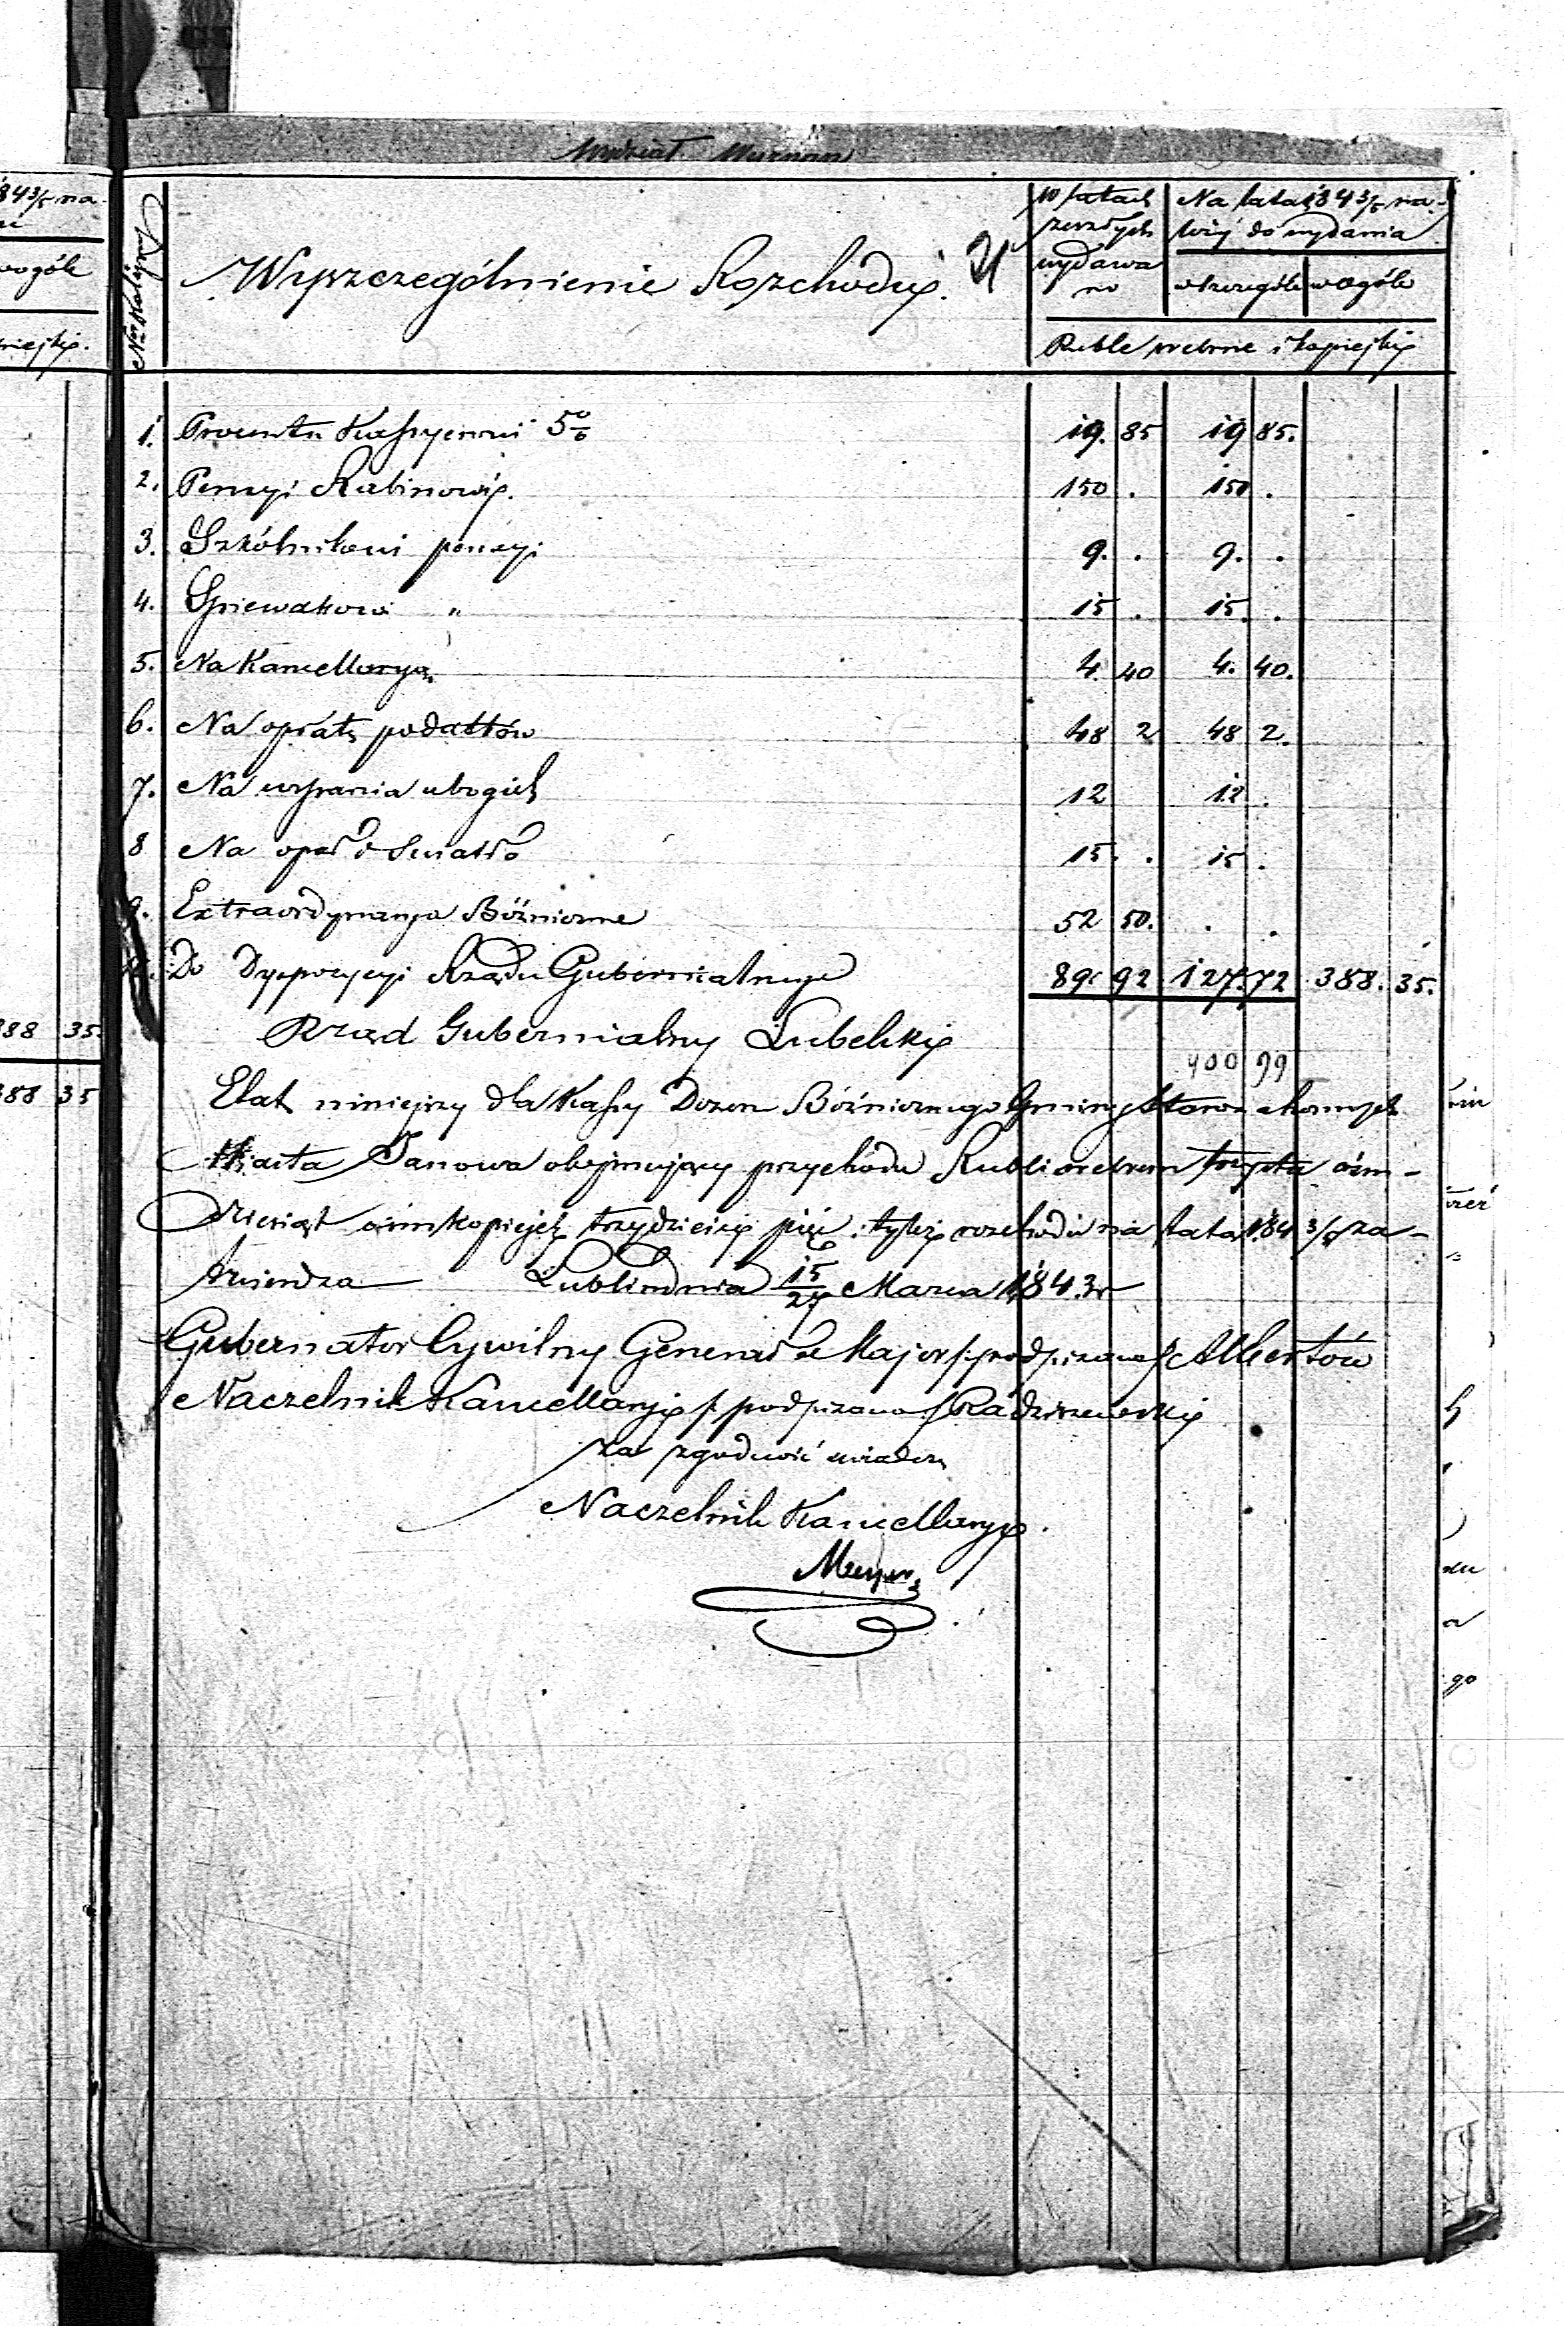 843/5 na-
wogóle
35.
388 35
Wydział
Nr Kolejny
Wyszczególnienie Rozchodu.
w latach
zeszłych
wydawa
no
Na lata 1843/5 na-
leży do wydania
w szczególe
w ogóle
Ruble srebrne i kopiejki
1. Procentu Kassyerowi 5% 19. 85 19 85.
2. Pensyi Rabinowi. 150 . 150 .
3. Szkólnikowi pensyi 9. . 9. .
4. Spiewakowi " 15 . 15. .
5. Na Kancellaryą. 4. 40 4. 40.
6. Na opłatę podatków 48 2 48 2.
7. Na wsparcia ubogich 12 12 .
8 Na opał i Swiatło 15. . 15 .
9. Extraordynarya Bóżniczne 52 50. . .
Do Dyspozycyi Rządu Gubernialnego 89. 92 127. 72 388. 35.
Rząd Gubernialny Lubelski
400 99
Etat niniejszy dla Kassy Dozoru Bóżnicznego Gminy Starozakonnych
Miasta Janowa obejmujący przychodu Rubli srebrem trzysta ośm-
dziesiąt ośm kopiejek trzydzieści pięć i tyleż rozchodu na lata 1843/5 za-
twierdza Lublin dnia 15/27 Marca 1843 r
Gubernator Cywilny Generał Major /: podpisano :/ Albertów
Naczelnik Kancellaryi /: podpisano :/ Radziszewski
za zgodność
Naczelnik Kancellaryi.